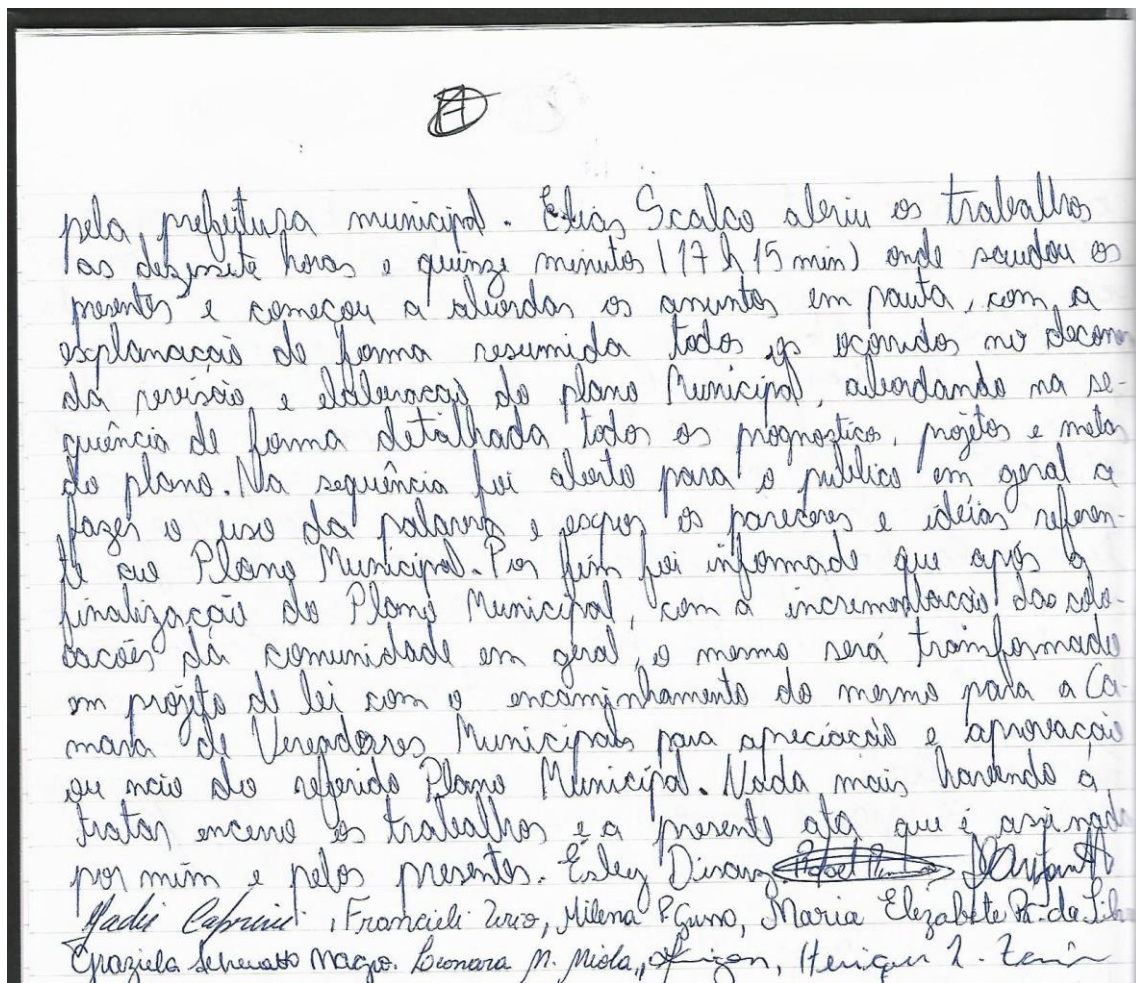 pela prefeitura municipal. Elias Scalco abriu os trabalhos
as dezessete horas e quinze minutos (17 h 15 min) onde saudou os
presentes e começou a abordar os assuntos em pauta, com a
explanação de forma resumida todos os ocorridos no decorrer
da revisão e elaboração do plano Municipal, abordando na se-
quência de forma detalhada todos os prognostico, projetos e metas
do plano. Na sequência foi aberto para o publico em geral a
fazer o uso da palavra e expor os pareceres e idéias referen-
te ao Plano Municipal. Por fim foi informado que após a
finalização do Plano Municipal, com a incrementação das colo-
cacões da comunidade em geral, o mesmo será transformado
em projeto de lei com o encaminhamento do mesmo para a Ca-
mara de Vereadores Municipais para apreciação e aprovação
ou não do referido Plano Municipal. Nada mais havendo a
tratar encerro os trabalhos e a presente ata que é assinada
por mim e pelos presentes.
Francieli Maria Elizabete da
Graziela Leonara M. Miola,